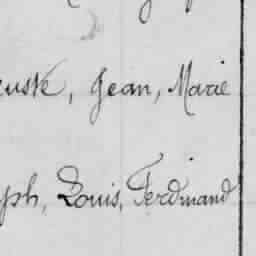 uste, Jean, Marie
ph, Louis, Ferdinand